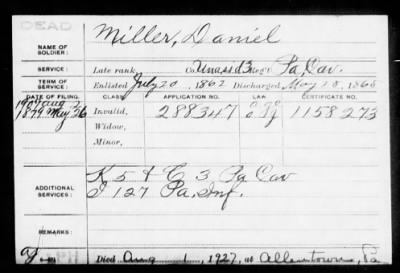 DEAD
NAME OF SOLDIER: Miller, Daniel
SERVICE: Late rank, Co. Unassd 3 Reg't Pa. Cav.
TERM OF SERVICE: Enlisted July 20, 1862 Discharged May 28, 1865
DATE OF FILING. CLASS. APPLICATION NO. LAW. CERTIFICATE NO.
1907 Aug 2
1879 May 26 Invalid, 288347 1158273
Widow,
Minor,
ADDITIONAL SERVICES: K 5 & C 3 Pa Cav
I 127 Pa. Inf.
REMARKS:
Died Aug 1, 1927, at Allentown, Pa